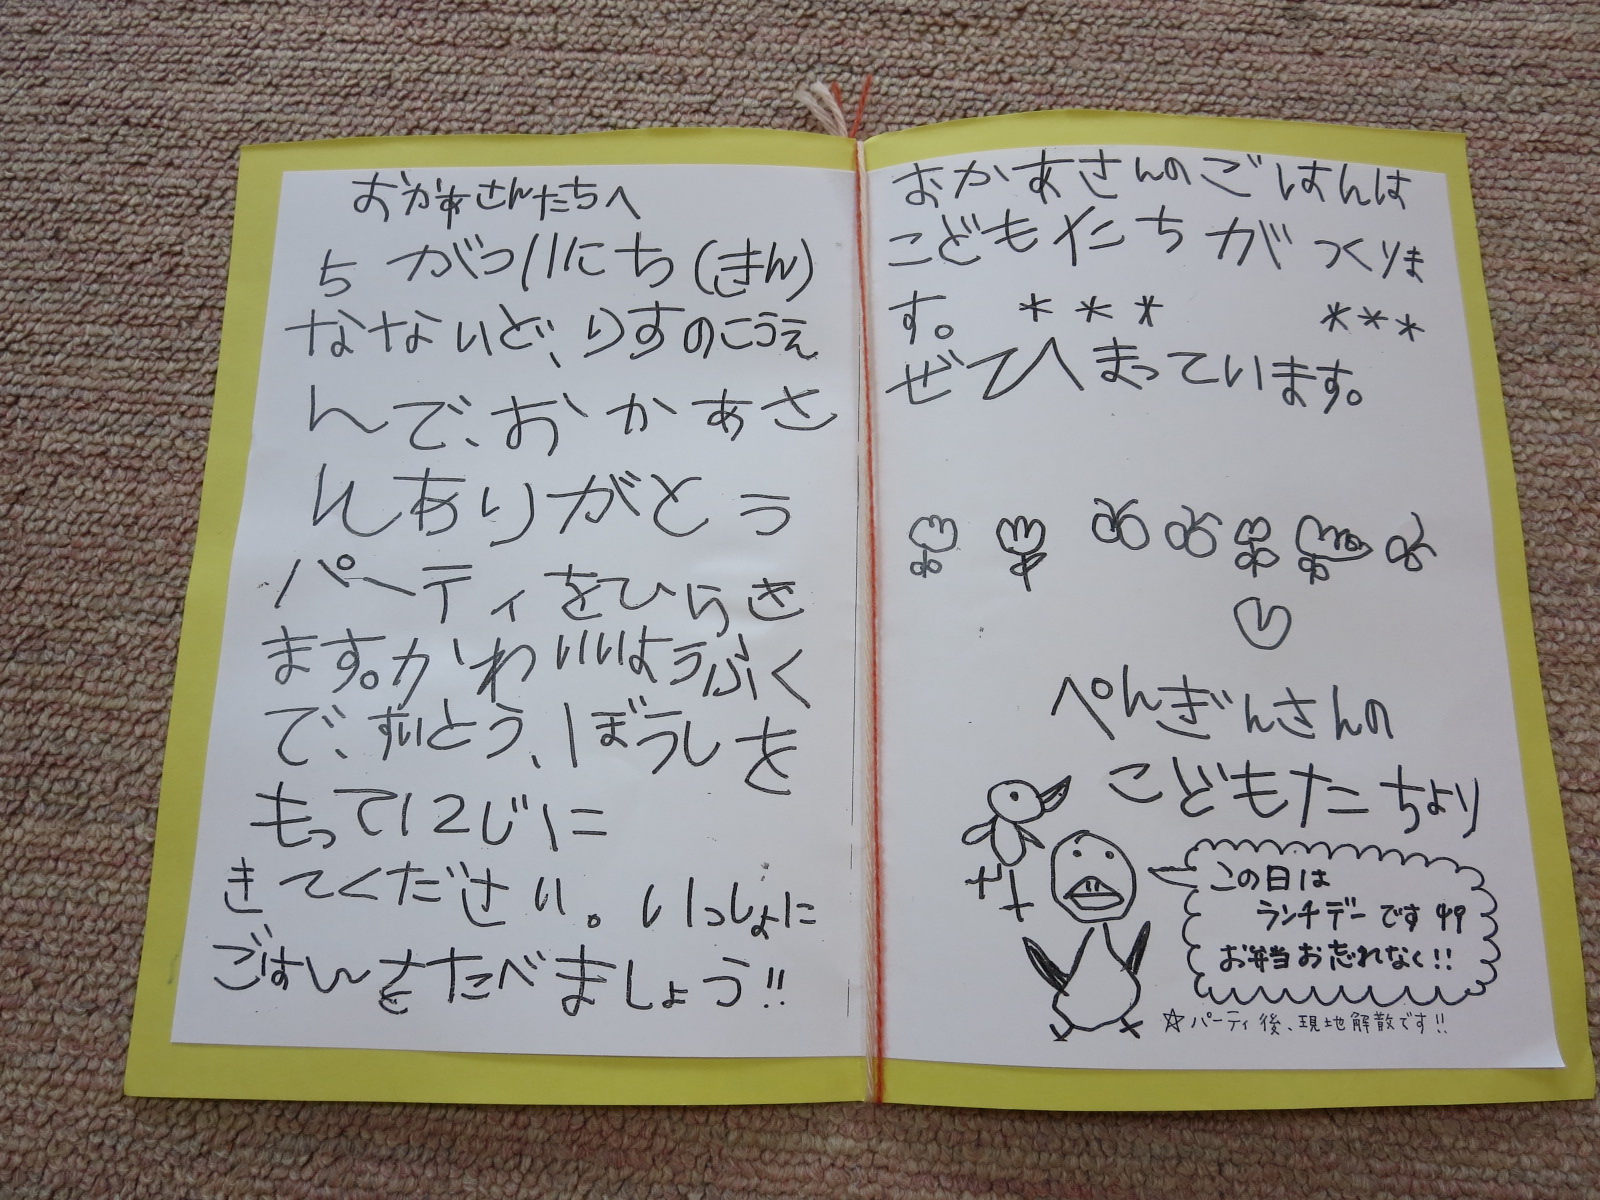 おかあさんたちへ
5がつ11にち(きん)
なないど、りすのこうえ
んで、おかあさ
んありがとう
パーティをひらき
ます。かわいいようふく
で、すいとう、ぼうしを
もって12じに
きてください。いっしょに
ごはんをたべましょう!!
おかあさんのごはんは
こどもたちがつくりま
す。 * * * * * *
ぜひまっています。
ぺんぎんさんの
こどもたちより
この日は
ランチデーです
お弁当お忘れなく!!
☆パーティ後、現地解散です!!